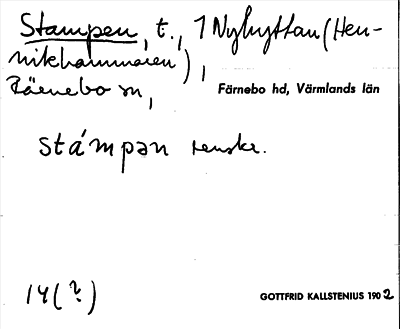 Stampen, t., 1 Nyhyttan (Hen-
nikhammaren),
Färnebo sn,
Färnebo hd, Värmlands län
stámpan renskr.
14(?)
GOTTFRID KALLSTENIUS 1902